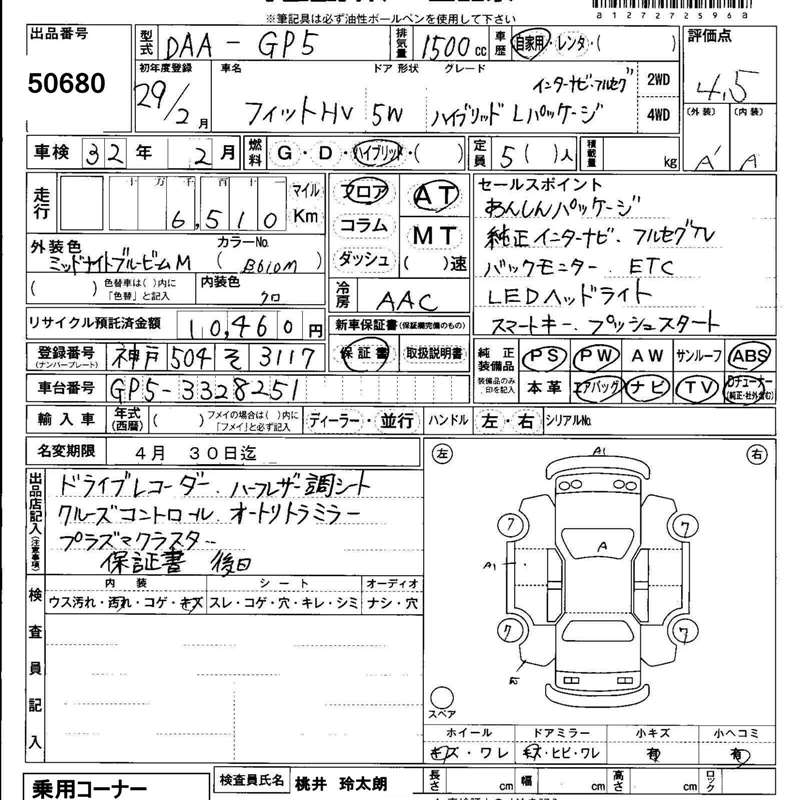 ※筆記具は必ず油性ボールペンを使用して下さい
a12727259 6a
出品番号 50680
型式 DAA-GP5 排気量 1500cc 車歴 自家用・レンタ・( )
評価点 4.5
初年度登録 29/2月 車名 フィットHV ドア 形状 5W グレード インターナビ・フルセグ ハイブリッド Lパッケージ 2WD 4WD
(外装) A' (内装) A
車検 32年 2月 燃料 G・D・ハイブリッド・( ) 定員 5( )人 積載量 kg
走行 十万 千百十 6,510 マイル Km
フロア コラム ダッシュ
AT MT ( )速
セールスポイント
あんしんパッケージ
純正インターナビ・フルセグTV
バックモニター ETC
LEDヘッドライト
スマートキー、プッシュスタート
外装色 ミッドナイトブルービームM カラーNo. (B610M)
( ) 色替車は( )内に「色替」と記入 内装色 クロ
冷房 AAC
リサイクル預託済金額 10,460円
新車保証書(保証欄完備のもの)
保証書 取扱説明書
登録番号(ナンバープレート) 神戸 504 そ 3117
純正装備品 装備品のみ印を記入 PS PW AW サンルーフ ABS
本革 エアバッグ ナビ TV Dチューナー(純正・社外含む)
車台番号 GP5-3328251
輸入車 年式(西暦) ( ) フメイの場合は( )内に「フメイ」と必ず記入 ディーラー・並行 ハンドル 左・右 シリアルNo.
名変期限 4月 30日迄
出品店記入(注意事項)
ドライブレコーダー、ハーフレザー調シート
クルーズコントロール、オートリトラミラー
プラズマクラスター
保証書 後日
左 右
A1
7 7
A
A1
7 7
スペア
検査員記入
内装 シート オーディオ
ウス汚れ・汚れ・コゲ・キズ スレ・コゲ・穴・キレ・シミ ナシ・穴
ホイール ドアミラー 小キズ 小ヘコミ
キズ・ワレ キズ・ヒビ・ワレ 有 有
乗用コーナー
検査員氏名 桃井 玲太朗
長さ cm 幅 cm 高さ cm ロック